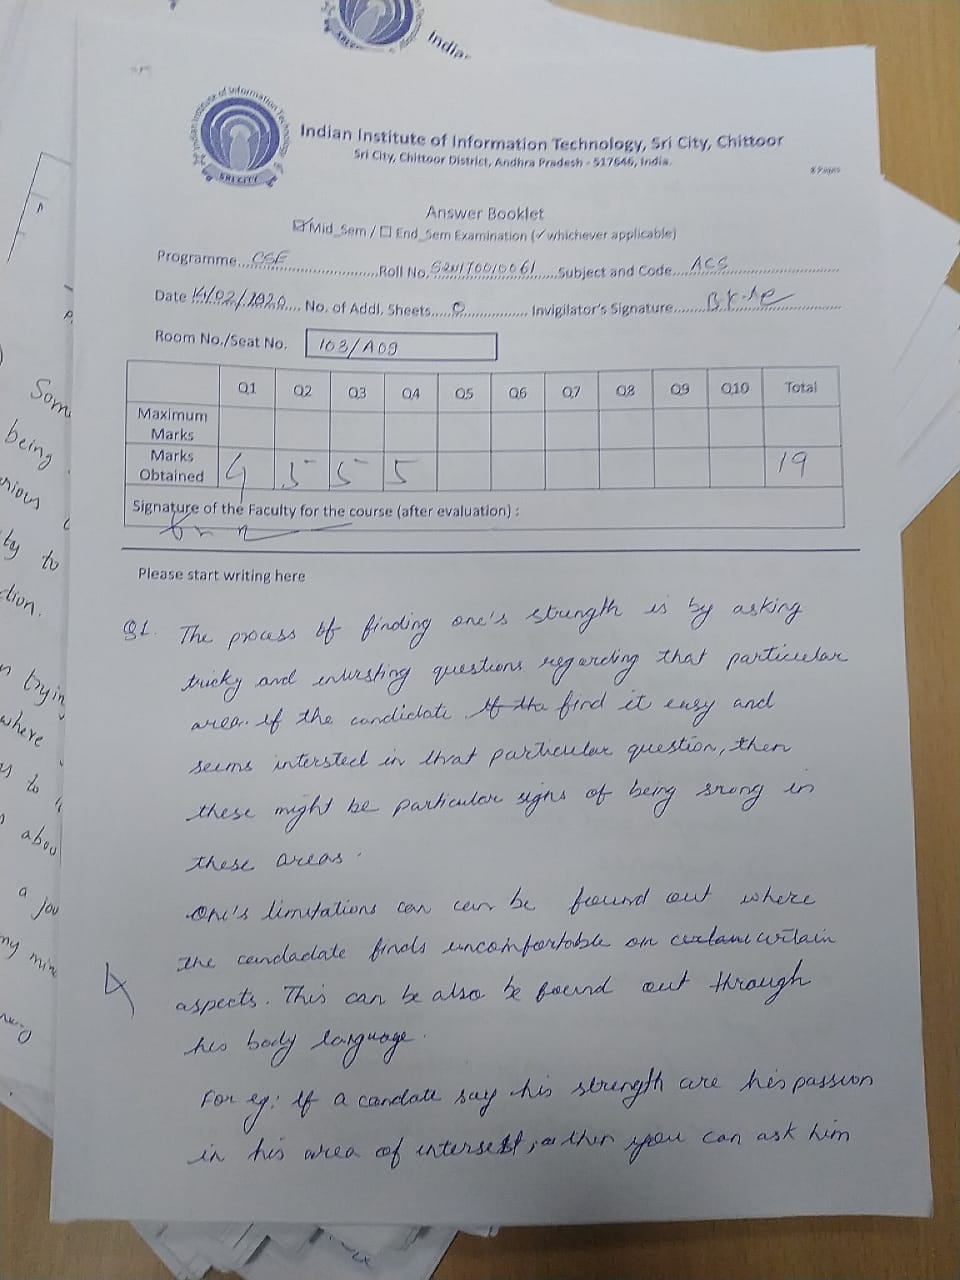 India
Indian Institute of Information Technology
SRI CITY
Indian Institute of Information Technology, Sri City, Chittoor
Sri City, Chittoor District, Andhra Pradesh - 517646, India.
8 Pages
Answer Booklet
☑Mid_Sem / ☐ End_Sem Examination (✓whichever applicable)
Programme...CSE...Roll No.S20170010061...Subject and Code...ACS
Date 14/02/2020 No. of Addl. Sheets...0... Invigilator's Signature...
Room No./Seat No. 103/A09
Q1 Q2 Q3 Q4 Q5 Q6 Q7 Q8 Q9 Q10 Total
Maximum Marks
Marks Obtained 4 5 5 5 19
Signature of the Faculty for the course (after evaluation) :
Please start writing here
Q1. The process of finding one's strength is by asking
tricky and intersting questions regarding that particular
area. if the candidate If the find it easy and
seems intersted in that particular question, then
these might be particular signs of being srong in
these areas.
One's limitations can can be found out where
the candadate finds uncomfortable on certain
4
aspects. This can be also be found out through
his body language.
For eg: If a candate say his strength are his passion
in his area of intersest, then you can ask him
Som
being
rious
ty to
ction.
n tryin
where
s to
abou
a jou
my min